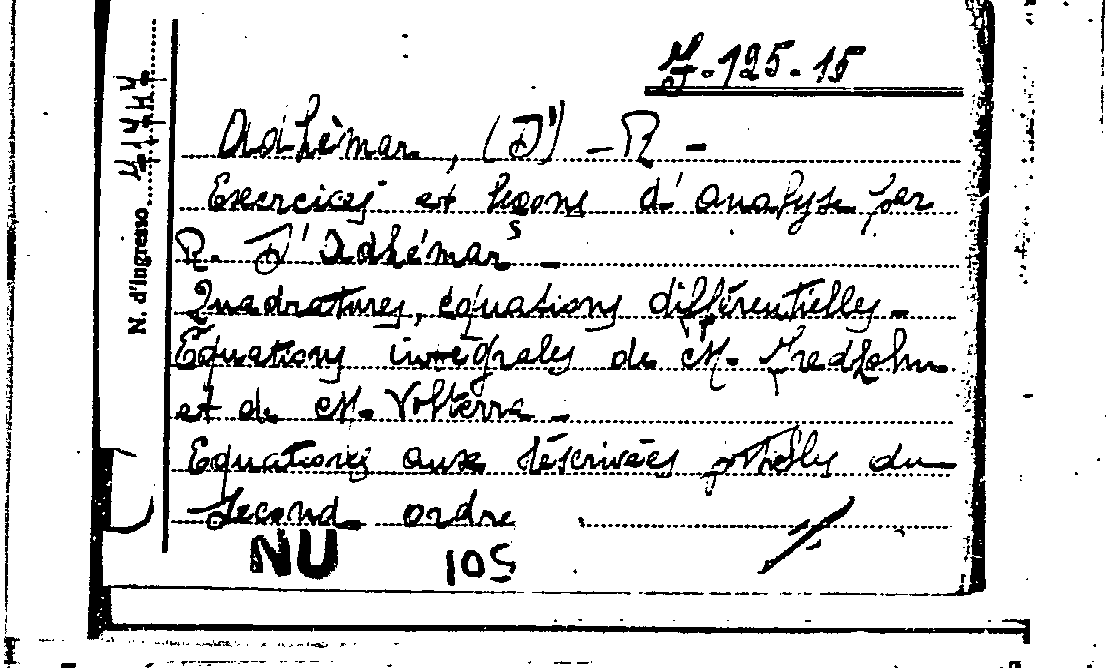 F.125.15
N. d'ingresso 41444
Adhèmar, (D') - R -
Exercices et leçons d'analyse par
R. D'Adhémar -
Quadratures, équations différentielles -
Équations intégrales de M. Fredholm
et de M. Volterra -
Equations aux déscrivées ptielles du
second ordre
NU 105